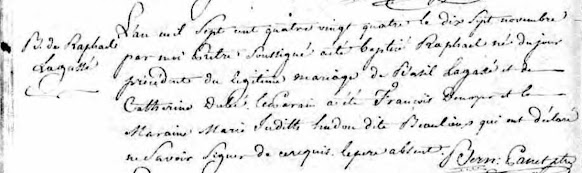 B. de Raphael
Lagassé
L'an mil Sept cent quatre vingt quatre le dix Sept novembre
par moi Prêtre Soussigné a été baptisé Raphael né du jour
précédent du légitime mariage de Basil Lagassé et de
Catherine dubé. Le Parain a été François et la
Maraine Marie Judith hudon dite Beaulieu qui ont déclaré
ne Savoir Signer de ce requis. le pere absent.